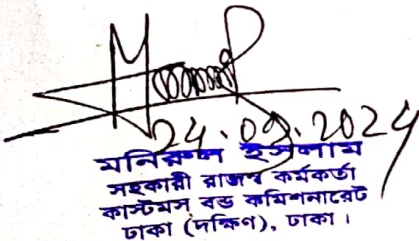 24.09.2024
মনিরুল ইসলাম
সহকারী রাজস্ব কর্মকর্তা
কাস্টমস বন্ড কমিশনারেট
ঢাকা (দক্ষিণ), ঢাকা।